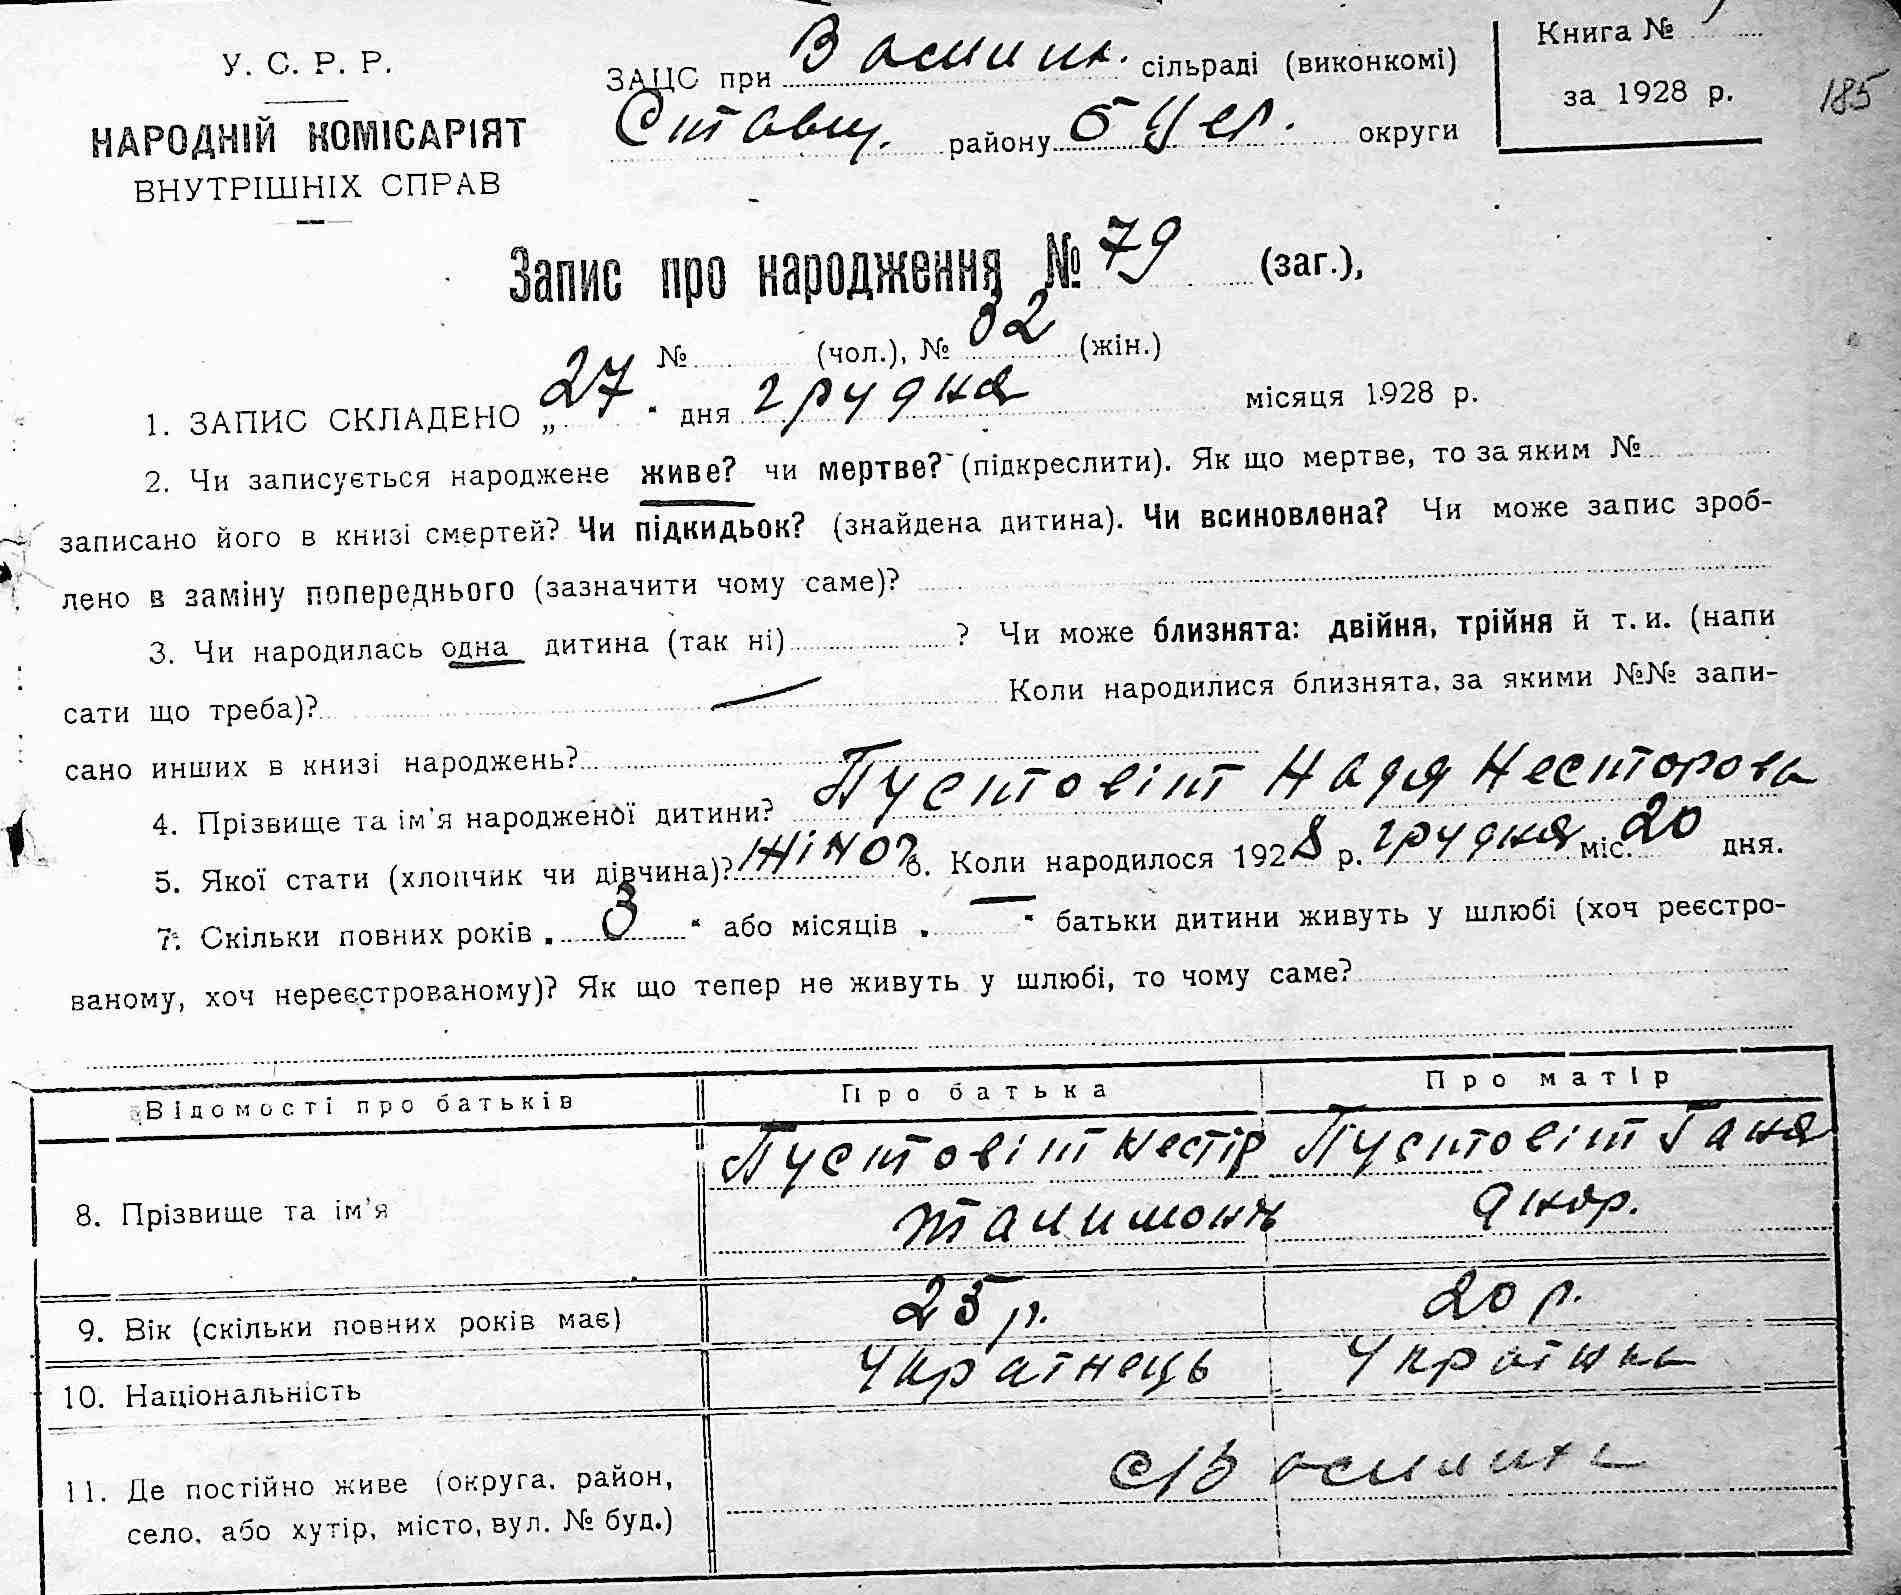 У. С. Р. Р.
НАРОДНІЙ КОМІСАРІЯТ
ВНУТРІШНІХ СПРАВ
ЗАЦС при Василих. сільраді (виконкомі)
Ставищ. району БЦер. округи
Книга №
за 1928 р.
185
Запис про народження № 79 (заг.),
№ (чол.), № 32 (жін.)
1. ЗАПИС СКЛАДЕНО „27“ дня грудня місяця 1928 р.
2. Чи записується народжене живе? чи мертве? (підкреслити). Як що мертве, то за яким №
записано його в книзі смертей? Чи підкидьок? (знайдена дитина). Чи всиновлена? Чи може запис зроб-
лено в заміну попереднього (зазначити чому саме)?
3. Чи народилась одна дитина (так ні) ? Чи може близнята: двійня, трійня й т. и. (напи
сати що треба)? — Коли народилися близнята, за якими №№ запи-
сано инших в книзі народжень?
4. Прізвище та ім'я народженої дитини? Пустовіт Надя Несторова
5. Якої стати (хлопчик чи дівчина)? Жіноч 6. Коли народилося 1928 р. грудня міс. 20 дня.
7. Скільки повних років „3“ або місяців „—“ батьки дитини живуть у шлюбі (хоч реєстро-
ваному, хоч нереєстрованому)? Як що тепер не живуть у шлюбі, то чому саме?
Відомості про батьків Про батька Про матір
8. Прізвище та ім'я Пустовіт Нестір Пустовіт Ганя
9. Вік (скільки повних років має) 25 р. 20 р.
10. Національність Українець Українка
11. Де постійно живе (округа, район,
село, або хутір, місто, вул. № буд.)